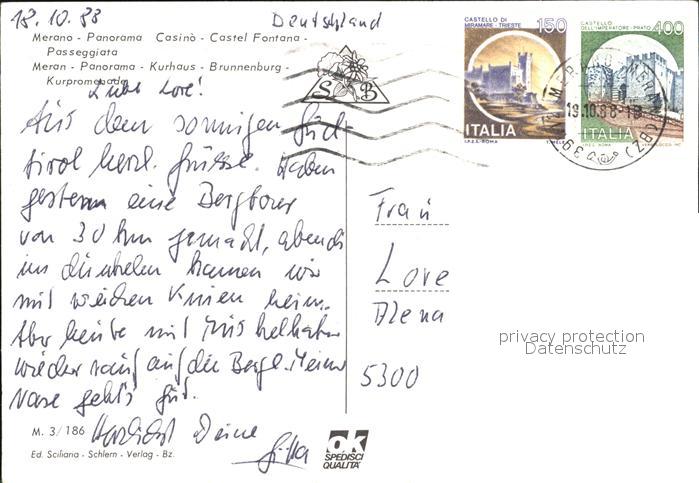 18.10.88
Deutschland
Merano - Panorama Casinò - Castel Fontana -
Passeggiata
Meran - Panorama - Kurhaus - Brunnenburg -
Kurpromenade
Liebe Love!
Aus dem sonnigen Süd-
tirol herzl. Grüsse. Haben
gestern eine Bergtour
von 30 km gemacht, abends
im dunkeln kamen wir
mit weichen Knien heim.
Aber heute mit
wieder rauf auf die Berge. Meiner
Nase geht's gut.
Herzlichst Deine
Gitta
M. 3/186
Ed. Sciliana - Schlern - Verlag - Bz.
ok
SPEDISCI
QUALITA'
S B
CASTELLO DI
MIRAMARE - TRIESTE
150
ITALIA
I.P.Z.S. ROMA
CASTELLO
DELL'IMPERATORE - PRATO
400
ITALIA
I.P.Z.S. ROMA
MERANO MERAN (BZ)
19.10.88-18
Frau
Love
Alena
5300
privacy protection
Datenschutz